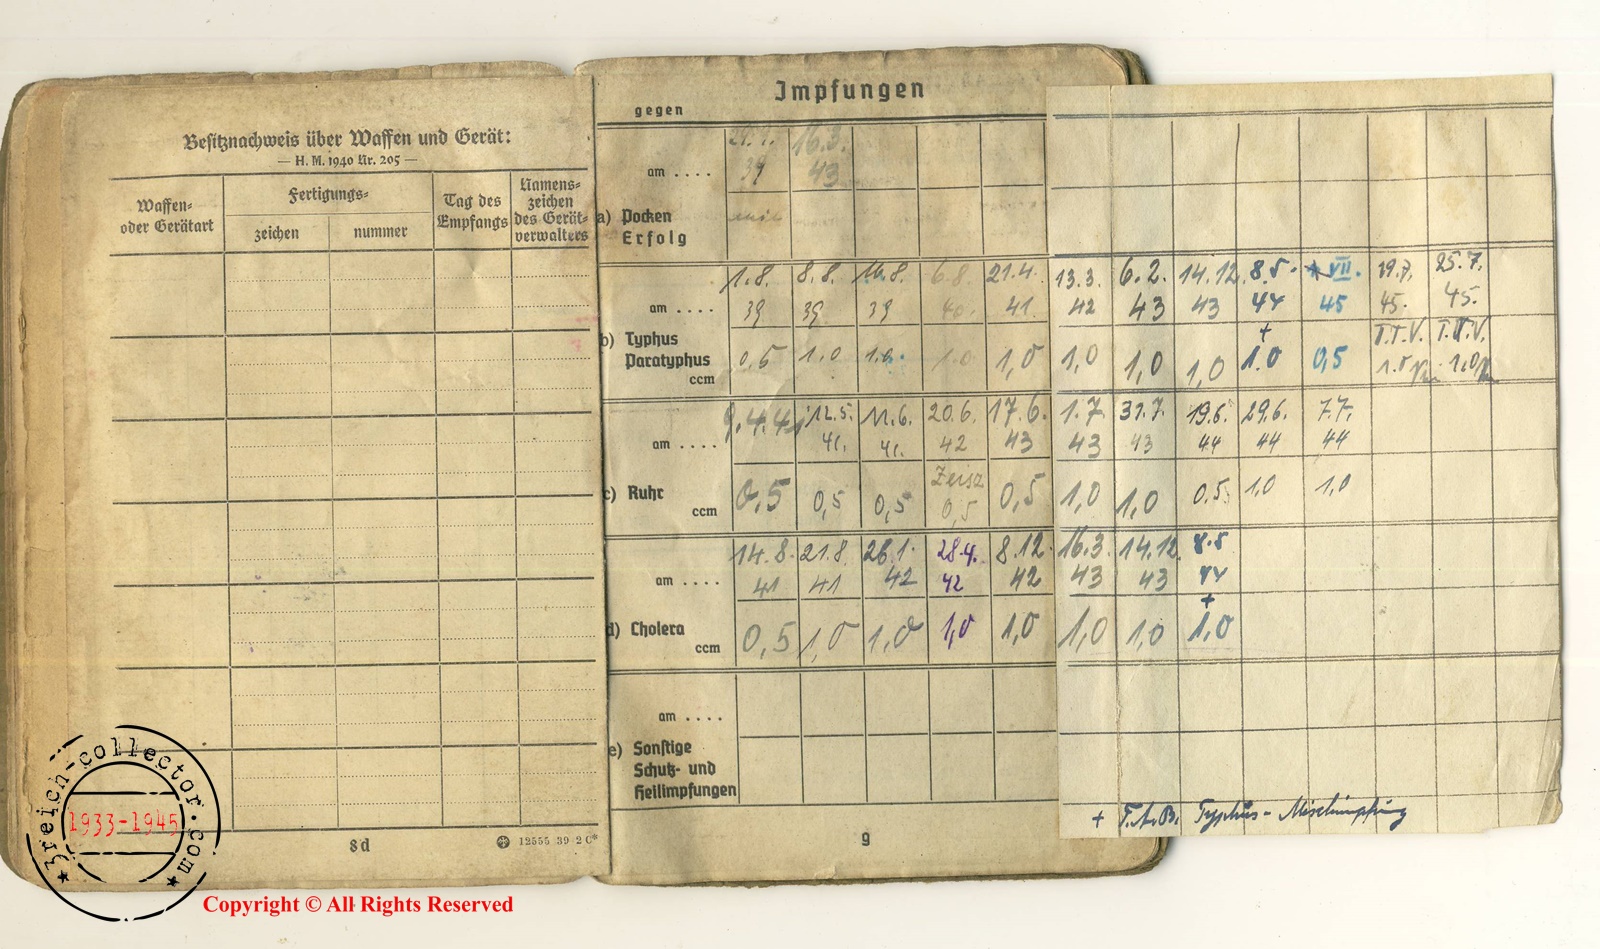 Besitznachweis über Waffen und Gerät:
— H. M. 1940 Nr. 205 —
Waffen-
oder Gerätart
Fertigungs-
zeichen
nummer
Tag des
Empfangs
Namens-
zeichen
des Gerät-
verwalters
8d
12555 39 2 C*
Impfungen
gegen
16.3.
am . . . . 39 43
a) Pocken
Erfolg
1.8. 8.8. 6.8. 21.4. 13.3. 6.2. 14.12. 8.5. VII. 19.7. 25.7.
am . . . . 39 39 39 40. 41. 42 43 43 44 45 45. 45.
b) Typhus + T.T.V. T.T.V.
Paratyphus 0,5 1.0 1.0. 1.0 1,0 1,0 1,0 1,0 1.0 0,5
ccm
9.4.41 12.5. 11.6. 20.6. 17.6. 1.7. 31.7. 19.6. 29.6. 7.7.
am . . . . 41. 41. 42 43 43 43 44 44 44
c) Ruhr 0,5 0,5 0,5 0,5 0,5 1,0 1,0 0,5 1,0 1,0
ccm
14.8. 21.8. 26.1. 28.4. 8.12. 16.3. 14.12. 8.5
am . . . . 41 41 42 42 42 43 43 44
+
d) Cholera 0,5 1,0 1,0 1,0 1,0 1,0 1,0 1,0
ccm
am . . . .
e) Sonstige
Schutz- und
Heilimpfungen
+ T.A.B. Typhus-Mischimpfung
9
3reich-collector.com
1933-1945
Copyright © All Rights Reserved